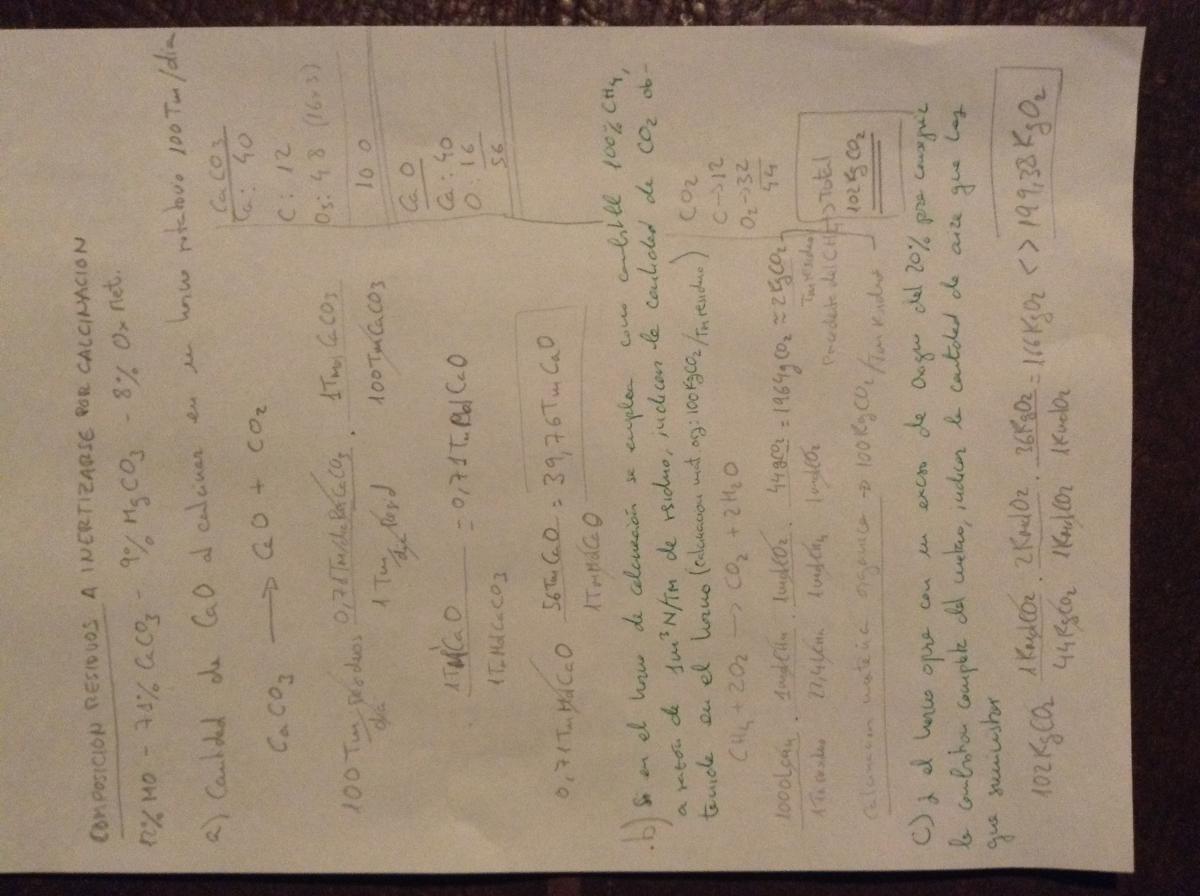 COMPOSICION RESIDUOS A INERTIZARSE POR CALCINACION
12% MO - 71% CaCO3 - 9% MgCO3 - 8% Ox Met.
a) Cantidad de CaO al calcinar en horno rotatorio 100 Tm/dia
CaCO3 → CaO + CO2
CaCO3
Ca: 40
C: 12
O3: 48 (16x3)
100
100 Tm residuos/dia · 0,71 Tm/dia CaCO3 / 1 Tm/dia Resid · 1 Tmol CaCO3 / 100 Tm CaCO3
CaO
Ca: 40
O: 16
56
· 1 TMol CaO / 1 TmMol CaCO3 = 0,71 TmMol CaO
0,71 TmMol CaO · 56 Tm CaO / 1 TmMol CaO = 39,76 Tm CaO
b) Si en el horno de calcinación se emplea como combustible 100% CH4,
a razon de 1m³N/TM de residuo, indicar la cantidad de CO2 ob-
tenida en el horno (calcinacion mat org: 100KgCO2/Tm residuo)
CH4 + 2O2 → CO2 + 2H2O
CO2
C → 12
O2 → 32
44
1000 L CH4 / 1 Tm residuo · 1 mol CH4 / 22,4 L CH4 · 1 mol CO2 / 1 mol CH4 · 44 g CO2 / 1 mol CO2 = 1964 g CO2 ≈ 2 Kg CO2 / Tm residuo
Procedente del CH4
calcinacion materia organica → 100 Kg CO2/Tm residuo
→ Total
102 Kg CO2
c) Si el horno opera con un exceso de Oxigeno del 20% para conseguir
la combustion completa del mismo, indicar la cantidad de aire que hay
que suministrar
102 Kg CO2 · 1 Kmol CO2 / 44 Kg CO2 · 2 Kmol O2 / 1 Kmol CO2 · 36 Kg O2 / 1 Kmol O2 = 166 Kg O2 <> 199,38 Kg O2